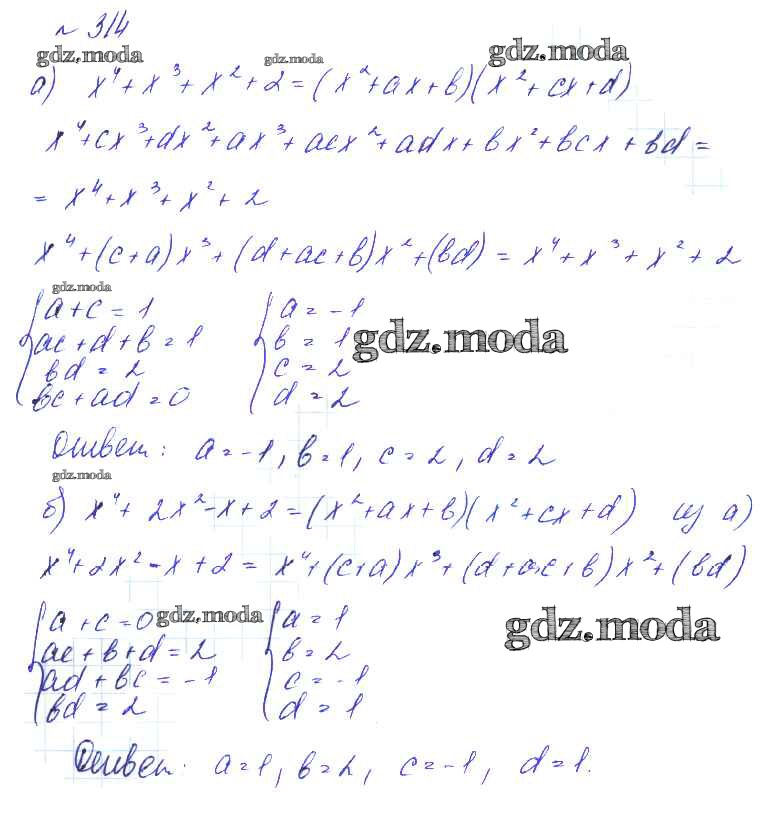 № 314
gdz.moda gdz.moda gdz.moda
а) x⁴ + x³ + x² + 2 = (x² + ax + b)(x² + cx + d)
x⁴ + cx³ + dx² + ax³ + acx² + adx + bx² + bcx + bd =
= x⁴ + x³ + x² + 2
x⁴ + (c + a)x³ + (d + ac + b)x² + (bd) = x⁴ + x³ + x² + 2
gdz.moda
a + c = 1 a = -1
ac + d + b = 1 b = 1 gdz.moda
bd = 2 c = 2
bc + ad = 0 d = 2
Ответ: a = -1, b = 1, c = 2, d = 2
gdz.moda
б) x⁴ + 2x² - x + 2 = (x² + ax + b)(x² + cx + d) из а)
x⁴ + 2x² - x + 2 = x⁴ + (c + a)x³ + (d + ac + b)x² + (bd)
a + c = 0 gdz.moda a = 1 gdz.moda
ac + b + d = 2 b = 2
ad + bc = -1 c = -1
bd = 2 d = 1
Ответ: a = 1, b = 2, c = -1, d = 1.